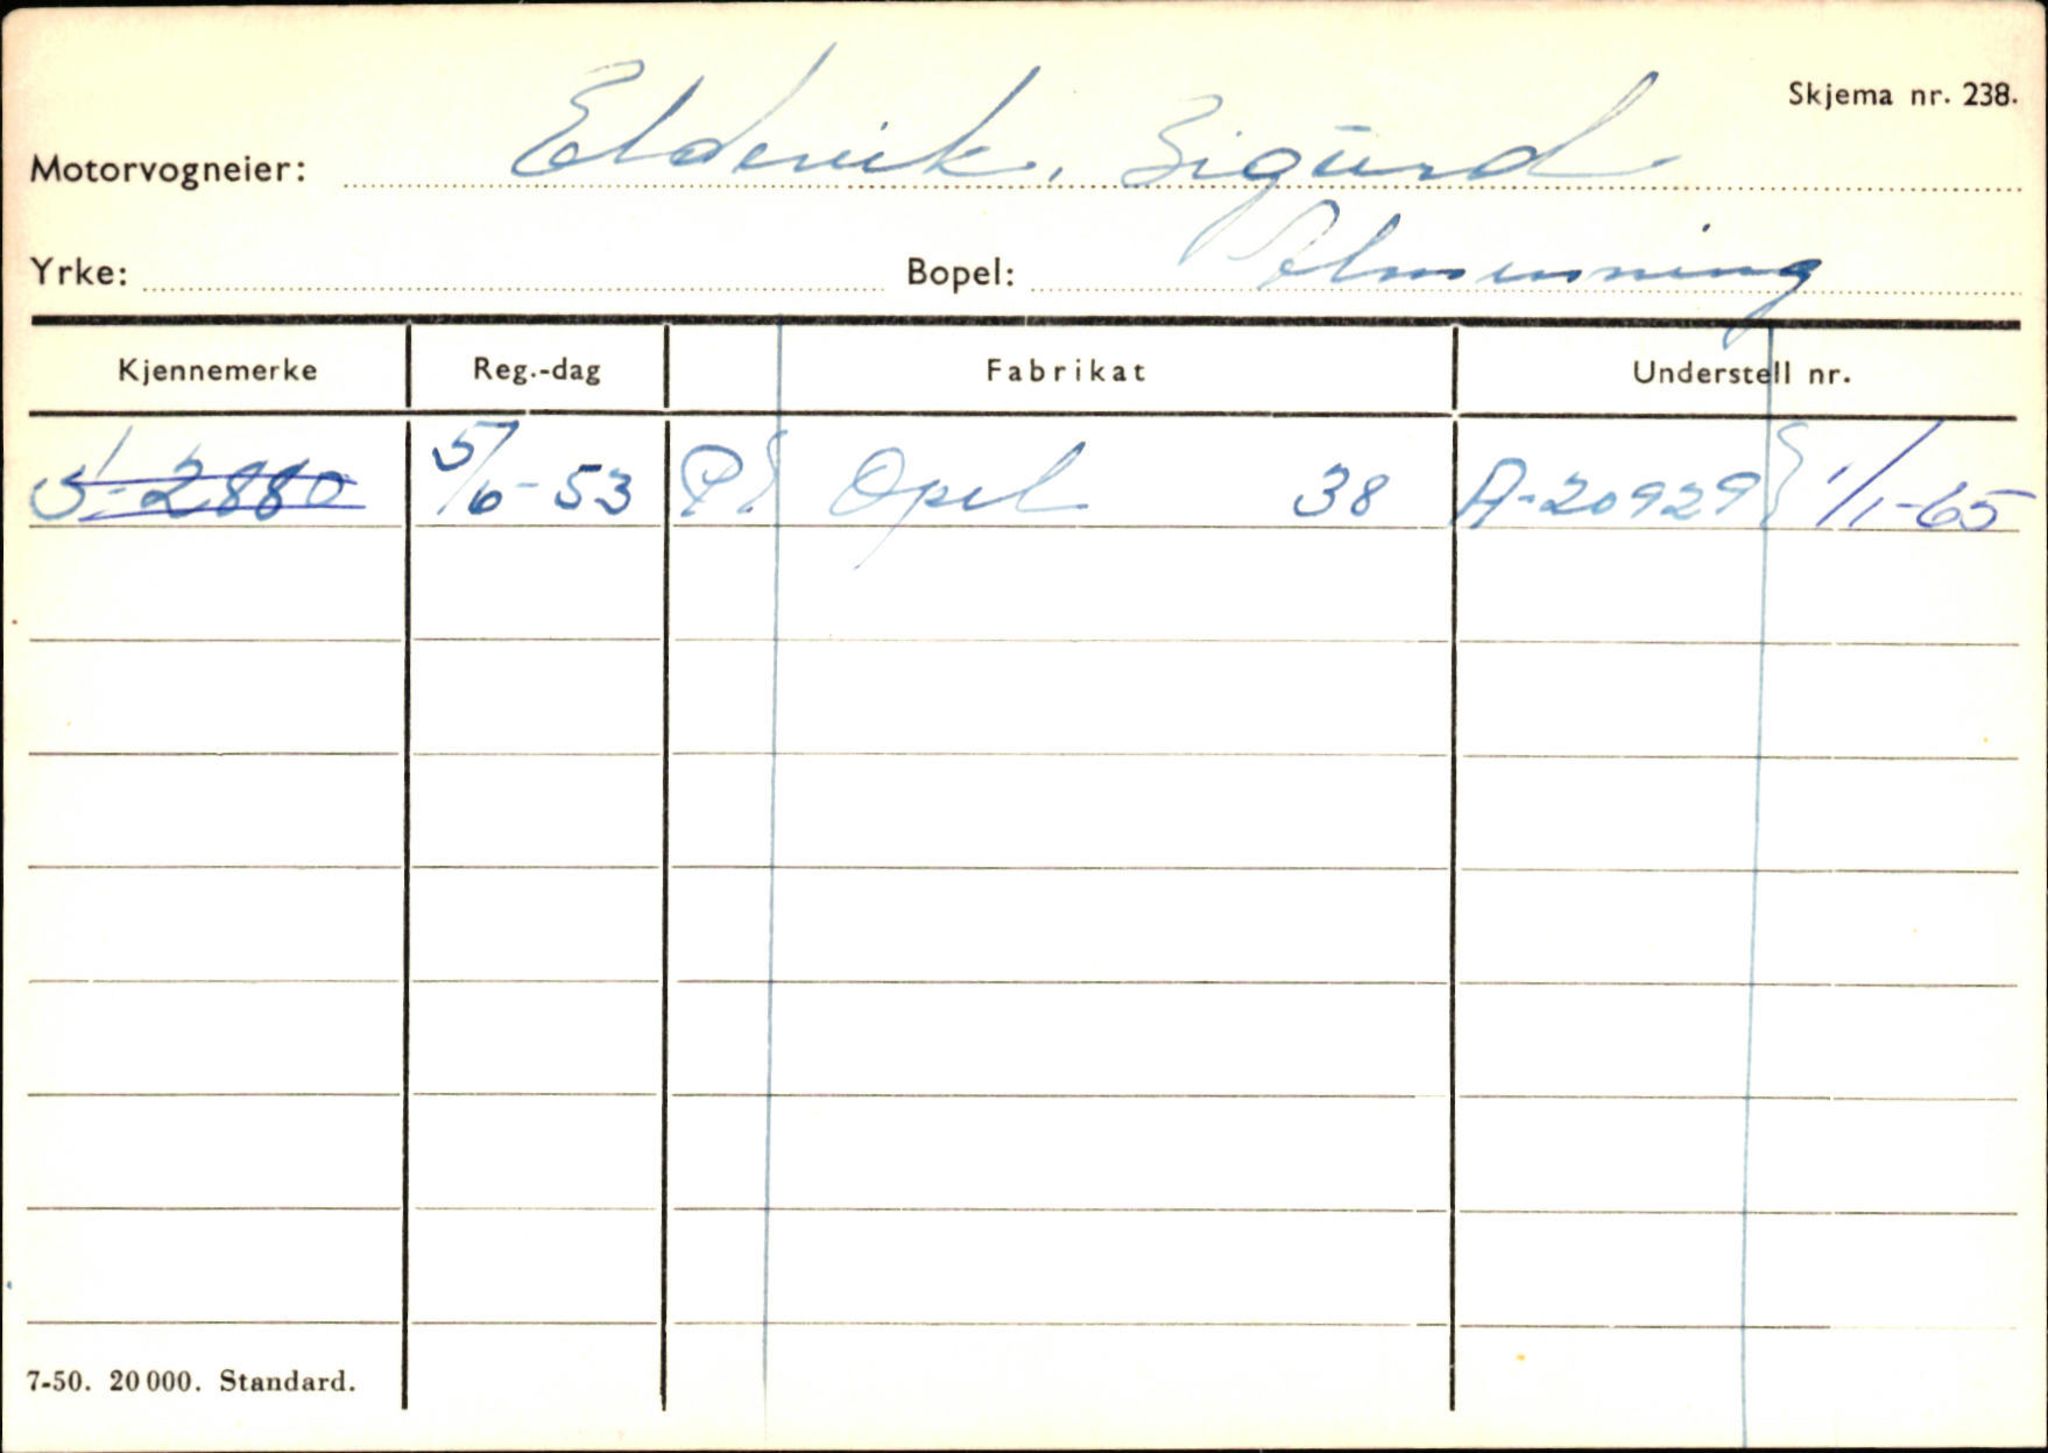 Skjema nr. 238.
Motorvogneier: Eldevik, Sigurd
Yrke: Bopel: Almenning
Kjennemerke Reg.-dag Fabrikat Understell nr.
S-2880 5/6-53 P Opel 38 A-20929 1/1-65
7-50. 20 000. Standard.